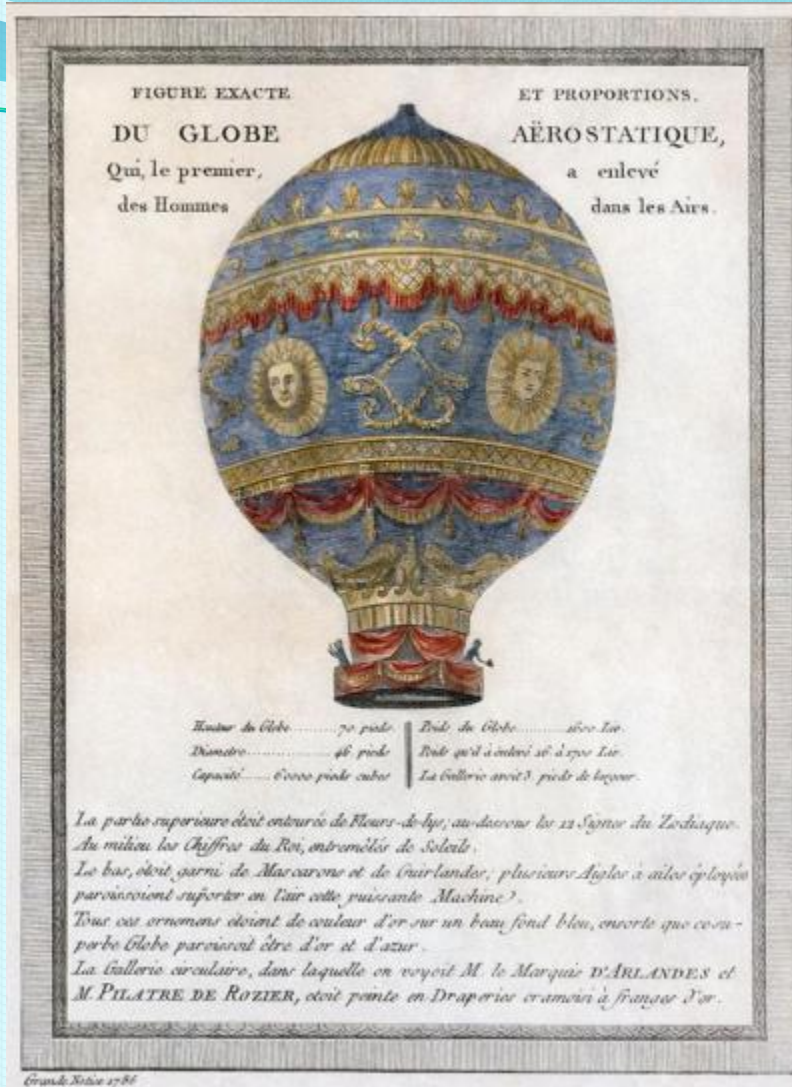 FIGURE EXACTE ET PROPORTIONS,
DU GLOBE AËROSTATIQUE,
Qui, le premier, a enlevé
des Hommes dans les Airs.
Hauteur du Globe........70 pieds.
Diametre...............46 pieds
Capacité......60000 pieds cubes
Poids du Globe.........1600 Liv.
Poids qu'il à enlevé 16 à 1700 Liv.
La Gallerie avoit 3 pieds de largeur.
La partie superieure étoit entourée de Fleurs-de-lys; au-dessous les 12 Signes du Zodiaque.
Au milieu les Chiffres du Roi, entremêlés de Soleils.
Le bas, étoit garni de Mascarons et de Guirlandes; plusieurs Aigles à ailes éployées
paroissoient suporter en l'air cette puissante Machine.
Tous ces ornemens étoient de couleur d'or sur un beau fond bleu, ensorte que ce su-
perbe Globe paroissoit être d'or et d'azur.
La Gallerie circulaire, dans laquelle on voyoit M. le Marquis D'ARLANDES et
M. PILATRE DE ROZIER, etoit peinte en Draperies cramoisi à franges d'or.
Grande Notice 1786